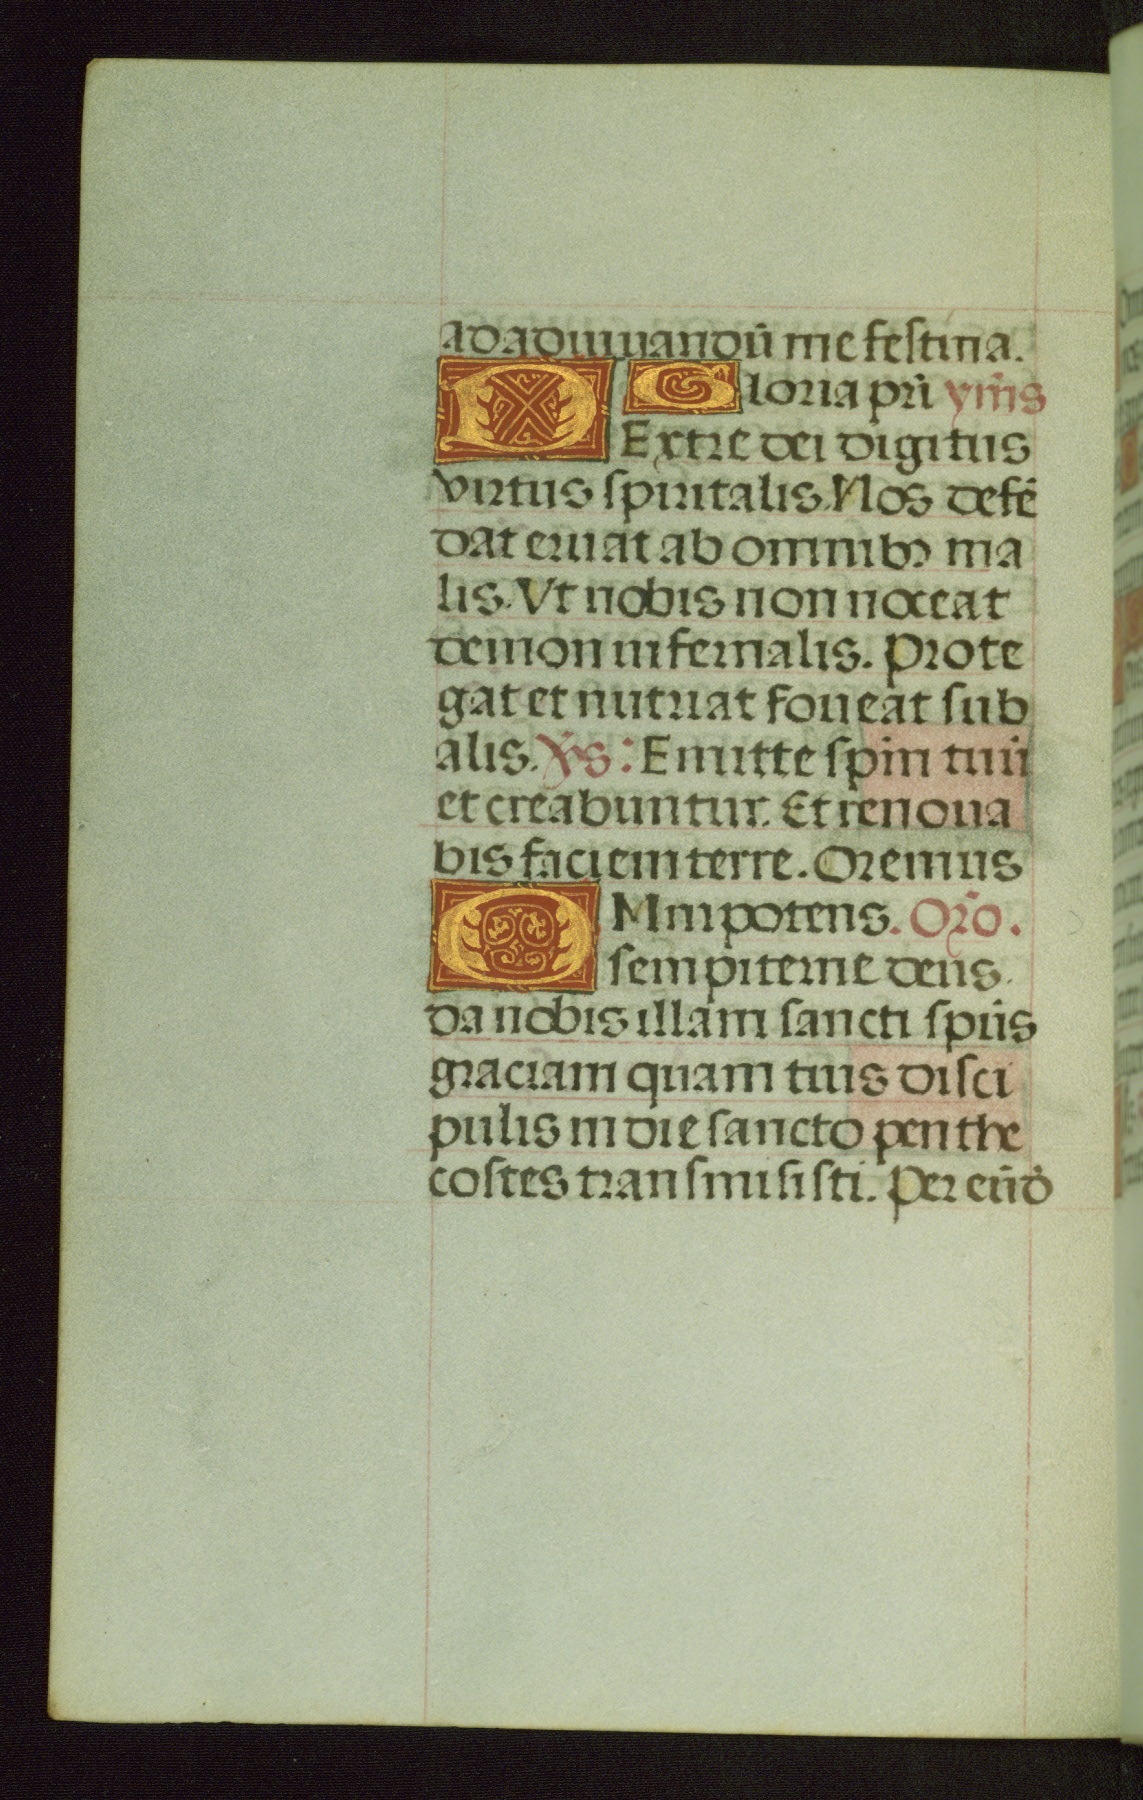 ad adiuuandū me festina.
Gloria pr̄i ym̄s
DExtre dei digitus
virtus spiritalis. Nos defē
dat eruat ab omnibꝫ ma
lis. Vt nobis non noceat
demon infernalis. Prote
gat et nutriat foueat sub
alis. v̄s: Emitte spm̄ tuū
et creabuntur. Et renoua
bis faciem terre. Oremus
OMnipotens. Orō.
sempiterne deus.
da nobis illam sancti spūs
graciam quam tuis disci
pulis in die sancto penthe
costes transmisisti. Per eūd